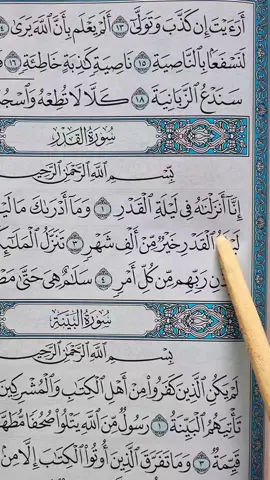 أَرَءَيْتَ إِن كَذَّبَ وَتَوَلَّىٰٓ ١٣ أَلَمْ يَعْلَم بِأَنَّ ٱللَّهَ يَرَىٰ
لَنَسْفَعًۢا بِٱلنَّاصِيَةِ ١٥ نَاصِيَةٍ كَٰذِبَةٍ خَاطِئَةٍ ١٦
سَنَدْعُ ٱلزَّبَانِيَةَ ١٨ كَلَّا لَا تُطِعْهُ وَٱسْجُدْ
سُورَةُ ٱلْقَدْرِ
بِسْمِ ٱللَّهِ ٱلرَّحْمَٰنِ ٱلرَّحِيمِ
إِنَّآ أَنزَلْنَٰهُ فِى لَيْلَةِ ٱلْقَدْرِ ١ وَمَآ أَدْرَىٰكَ مَا
ٱلْقَدْرِ خَيْرٌ مِّنْ أَلْفِ شَهْرٍ ٣ تَنَزَّلُ
رَبِّهِم مِّن كُلِّ أَمْرٍ ٤ سَلَٰمٌ هِىَ حَتَّىٰ
سُورَةُ ٱلْبَيِّنَةِ
بِسْمِ ٱللَّهِ ٱلرَّحْمَٰنِ ٱلرَّحِيمِ
لَمْ يَكُنِ ٱلَّذِينَ كَفَرُوا۟ مِنْ أَهْلِ ٱلْكِتَٰبِ وَٱلْمُشْرِكِينَ
تَأْتِيَهُمُ ٱلْبَيِّنَةُ ١ رَسُولٌ مِّنَ ٱللَّهِ يَتْلُوا۟ صُحُفًا
قَيِّمَةٌ ٣ وَمَا تَفَرَّقَ ٱلَّذِينَ أُوتُوا۟ ٱلْكِتَٰبَ إِلَّا مِنۢ